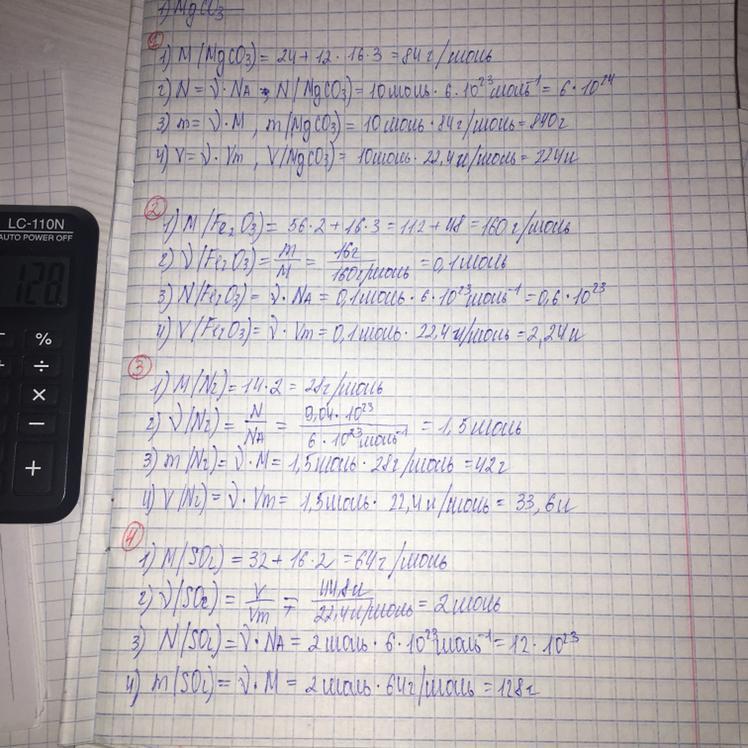 1) MgCO3
1
1) M(MgCO3) = 24 + 12 · 16 · 3 = 84 г/моль
2) N = ν · NA → N(MgCO3) = 10 моль · 6 · 10²³ моль⁻¹ = 6 · 10²⁴
3) m = ν · M, m(MgCO3) = 10 моль · 84 г/моль = 840 г
4) V = ν · Vm, V(MgCO3) = 10 моль · 22,4 л/моль = 224 л
2
1) M(Fe2O3) = 56 · 2 + 16 · 3 = 112 + 48 = 160 г/моль
2) ν(Fe2O3) = m/M = 16г/160г/моль = 0,1 моль
3) N(Fe2O3) = ν · NA = 0,1 моль · 6 · 10²³ моль⁻¹ = 0,6 · 10²³
4) V(Fe2O3) = ν · Vm = 0,1 моль · 22,4 л/моль = 2,24 л
3
1) M(N2) = 14 · 2 = 28 г/моль
2) ν(N2) = N/NA = 9,04 · 10²³/6 · 10²³ моль⁻¹ = 1,5 моль
3) m(N2) = ν · M = 1,5 моль · 28 г/моль = 42 г
4) V(N2) = ν · Vm = 1,5 моль · 22,4 л/моль = 33,6 л
4
1) M(SO2) = 32 + 16 · 2 = 64 г/моль
2) ν(SO2) = V/Vm = 44,8л/22,4л/моль = 2 моль
3) N(SO2) = ν · NA = 2 моль · 6 · 10²³ моль⁻¹ = 12 · 10²³
4) m(SO2) = ν · M = 2 моль · 64 г/моль = 128 г
LC-110N
AUTO POWER OFF
128
%
÷
×
−
+